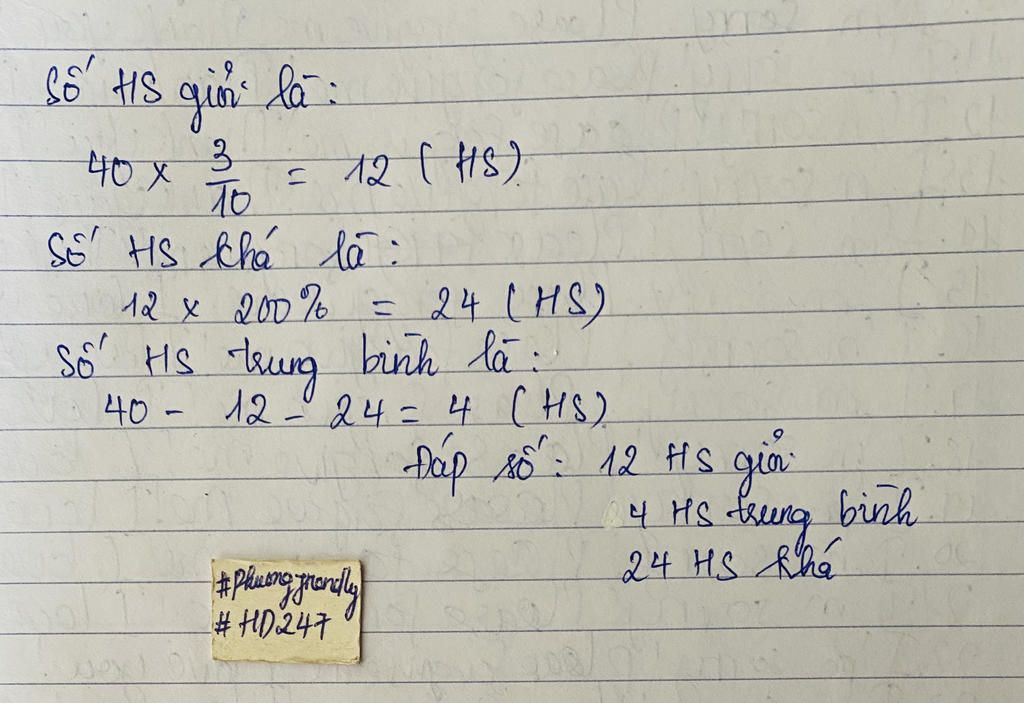 Số HS giỏi là:
40 x 3/10 = 12 (HS)
Số HS khá là:
12 x 200% = 24 (HS)
Số HS trung bình là:
40 - 12 - 24 = 4 (HS)
Đáp số: 12 HS giỏi
4 HS trung bình
24 HS khá
#Phuongfrendly
#HD247